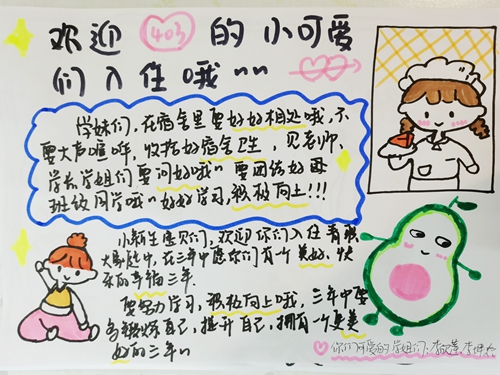 欢迎 403 的小可爱
们入住哦~~
学妹们,在宿舍里要好好相处哦,不
要大声喧哗,收拾好宿舍卫生,见老师、
学长学姐们要问好哦~要团结好同
班的同学哦~好好学习,积极向上!!!
小新生宝贝们,欢迎你们入住青职
大家庭中,在三年中愿你们有个美好、快
乐的幸福三年.
要努力学习,积极向上哦,三年中要
多锻炼自己,提升自己,拥有一个更美
好的三年~
你们可爱的学姐们:李